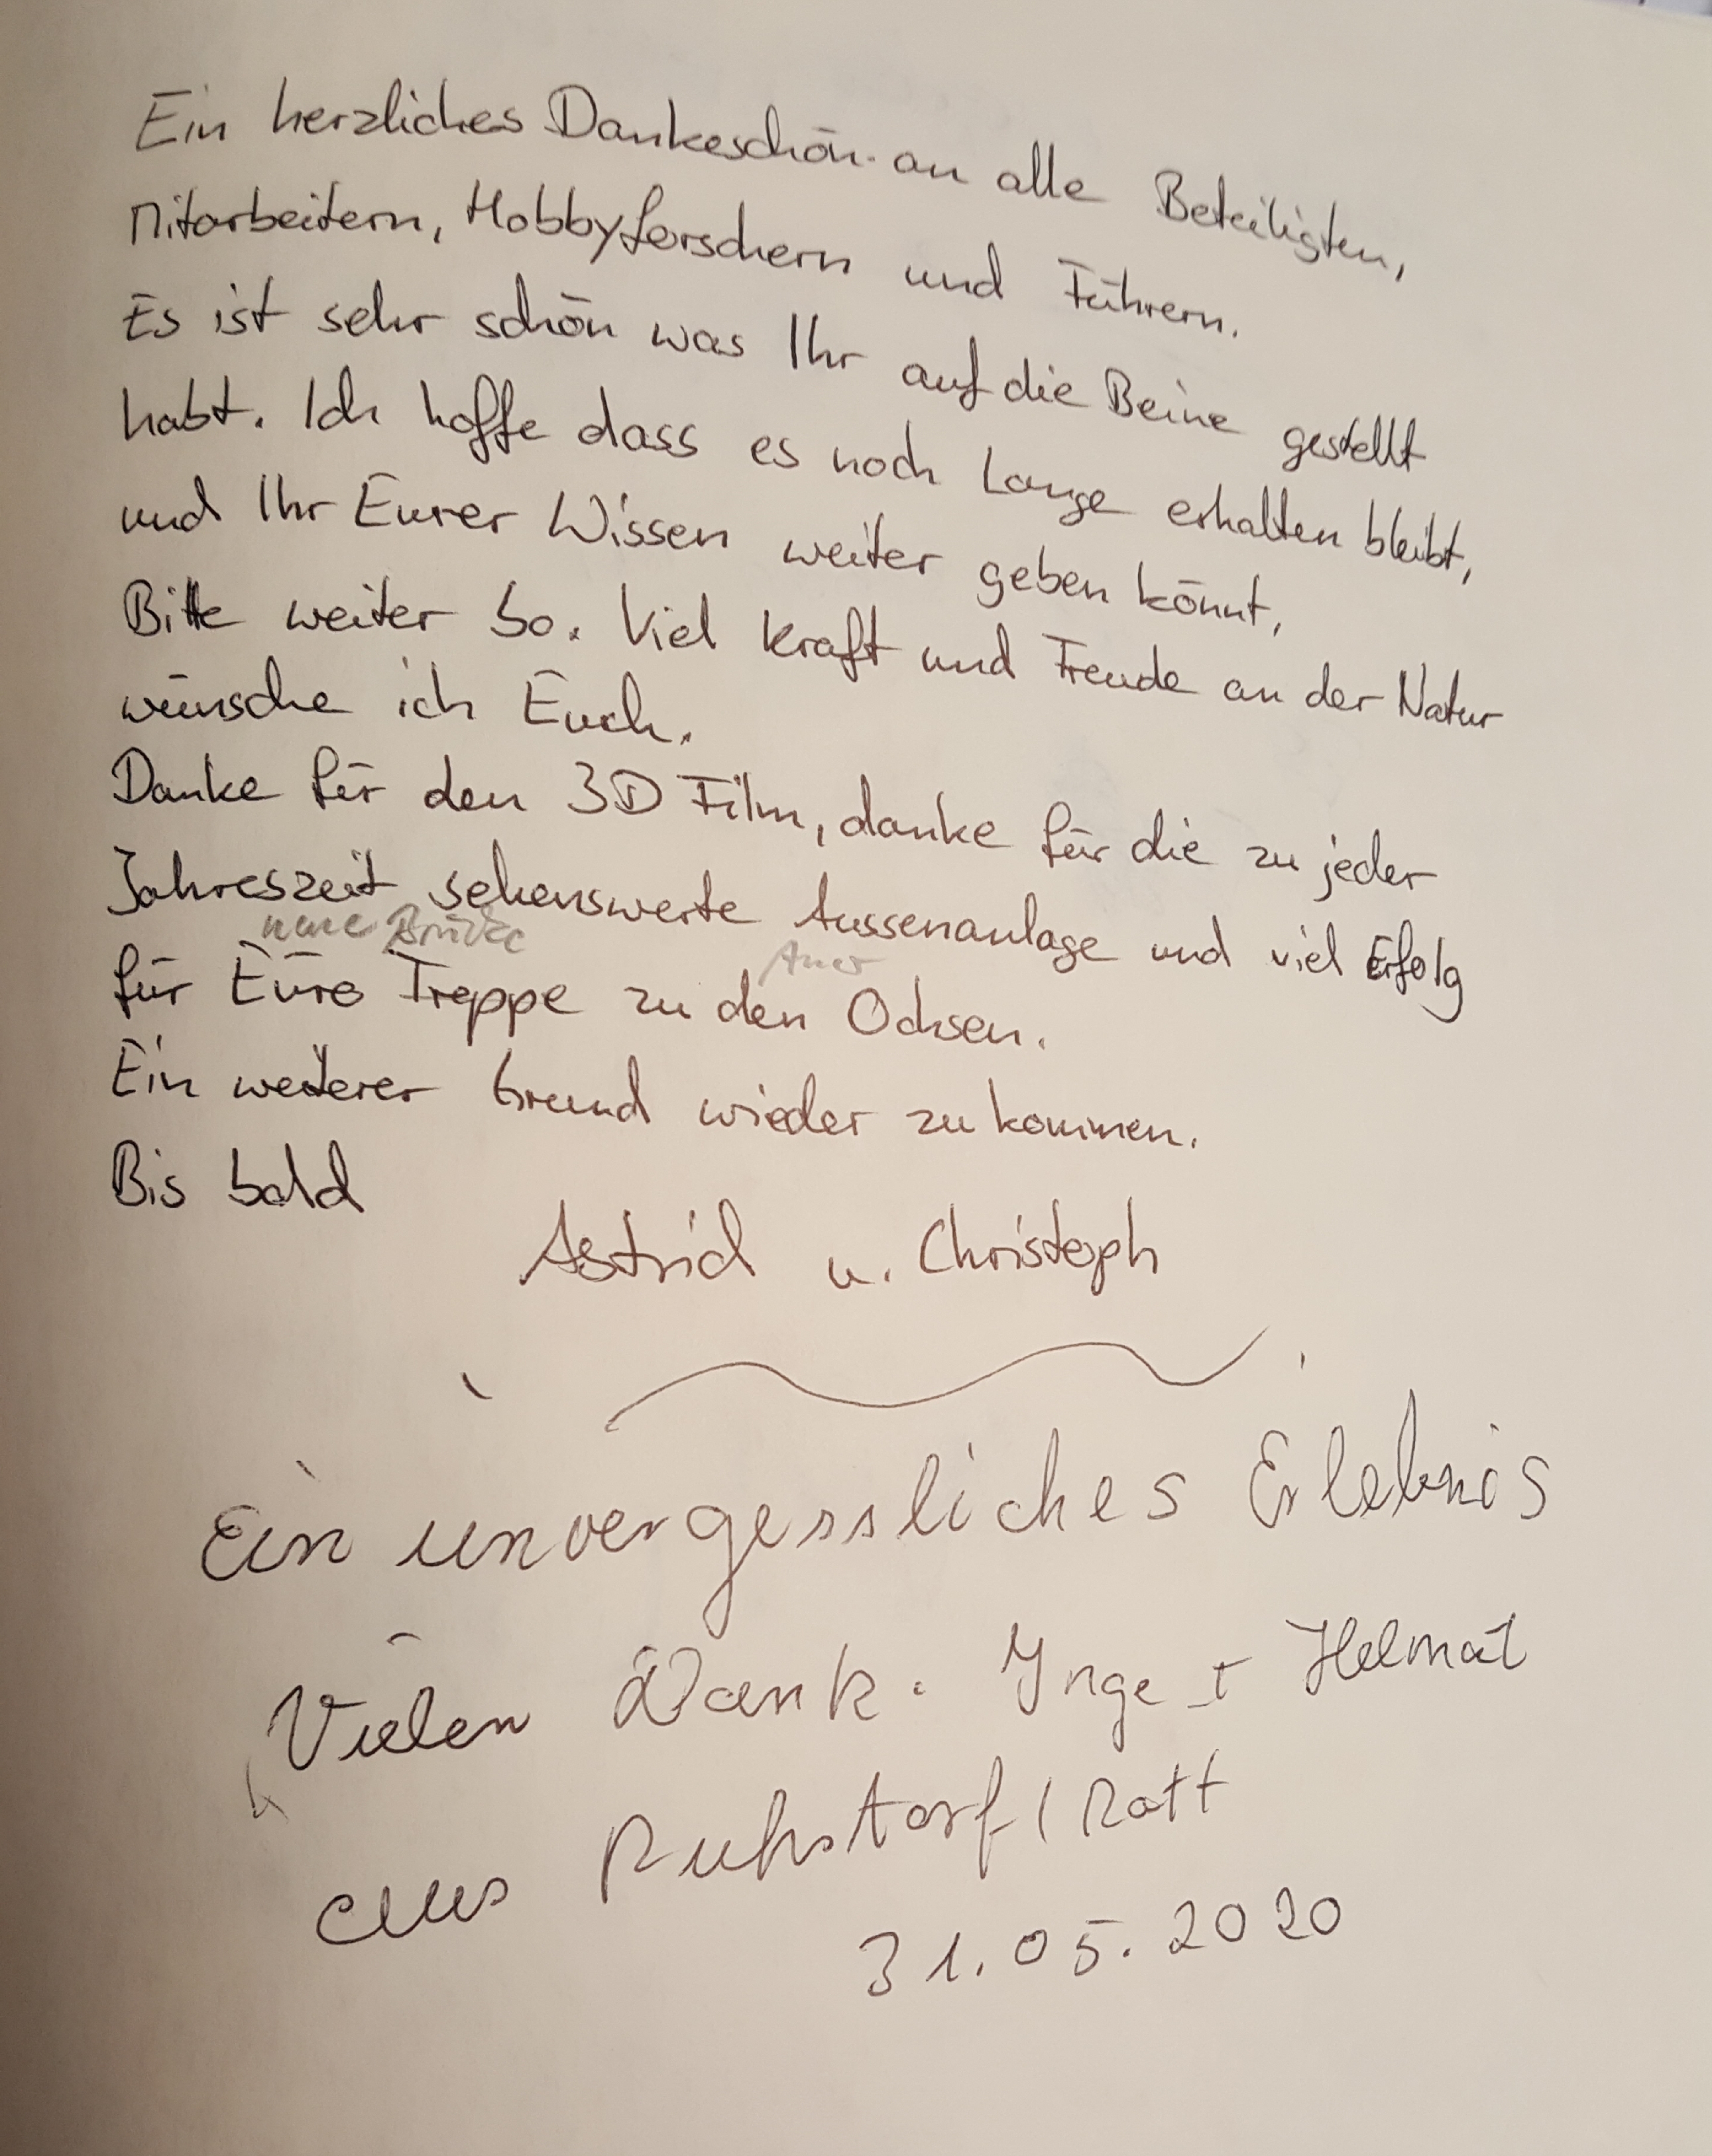 Ein herzliches Dankeschön an alle Beteiligten,
Mitarbeitern, Hobbyforschern und Führern.
Es ist sehr schön was Ihr auf die Beine gestellt
habt. Ich hoffe dass es noch Lange erhalten bleibt,
und Ihr Eurer Wissen weiter geben könnt,
Bitte weiter so. Viel Kraft und Freude an der Natur
wünsche ich Euch.
Danke für den 3D Film, danke für die zu jeder
Jahreszeit sehenswerte Aussenanlage und viel Erfolg
neue Brücke Auer
für Eure Treppe zu den Ochsen.
Ein weiterer Grund wieder zu kommen.
Bis bald
Astrid u. Christoph
Ein unvergessliches Erlebnis
Vielen Dank. Inge + Helmut
aus Ruhstorf / Rott
31.05.2020